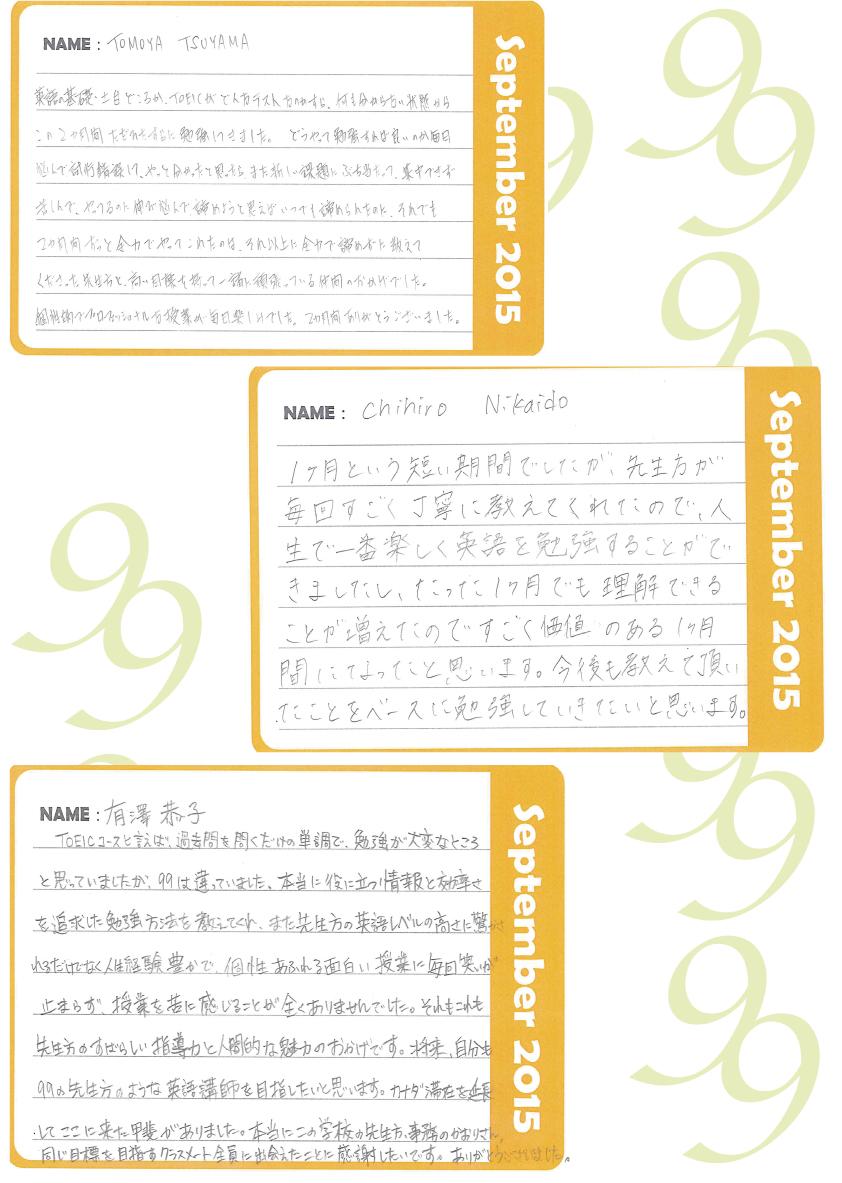 NAME : TOMOYA TSUYAMA
英語の基礎・土台どころか、TOEICがどんなテストなのかすら、何も分からない状態から
この2か月間ただひたすらに勉強してきました。 どうやって勉強すれば良いのか毎日
悩んで試行錯誤して、やっと分かったと思ったら、また新しい課題にぶち当たって、集中できず
苦しんで、やってるのに伸び悩んで、諦めようと思えばいつでも諦められたのに、それでも
2か月間ずっと全力でやってこれたのは、それ以上に全力で諦めずに教えて
くださった先生方と、高い目標を持って一緒に頑張っている仲間のおかげでした。
個性的でプロフェッショナルな授業が毎日楽しみでした。2か月間ありがとうございました。
September 2015
NAME : Chihiro Nikaido
1ヶ月という短い期間でしたが、先生方が
毎回すごく丁寧に教えてくれたので、人
生で一番楽しく英語を勉強することがで
きましたし、たった1ヶ月でも理解できる
ことが増えたのですごく価値のある1ヶ月
間になったと思います。今後も教えて頂い
たことをベースに勉強していきたいと思います。
September 2015
NAME : 有澤 恭子
TOEICコースと言えば、過去問を聞くだけの単調で、勉強が大変なところ
と思っていましたが、99は違っていました。本当に役に立つ情報と効率さ
を追求した勉強方法を教えてくれ、また先生方の英語レベルの高さに驚かさ
れるだけでなく人生経験豊かで、個性あふれる面白い授業に毎日笑いが
止まらず、授業を苦に感じることが全くありませんでした。それもこれも
先生方のすばらしい指導力と人間的な魅力のおかげです。将来、自分も
99の先生方のような英語講師を目指したいと思います。カナダ滞在を延長
してここに来た甲斐がありました。本当にこの学校の先生方、事務のかおりさん、
同じ目標を目指すクラスメート全員に出会えたことに感謝したいです。ありがとうございました。
September 2015
99
99
99
99
99